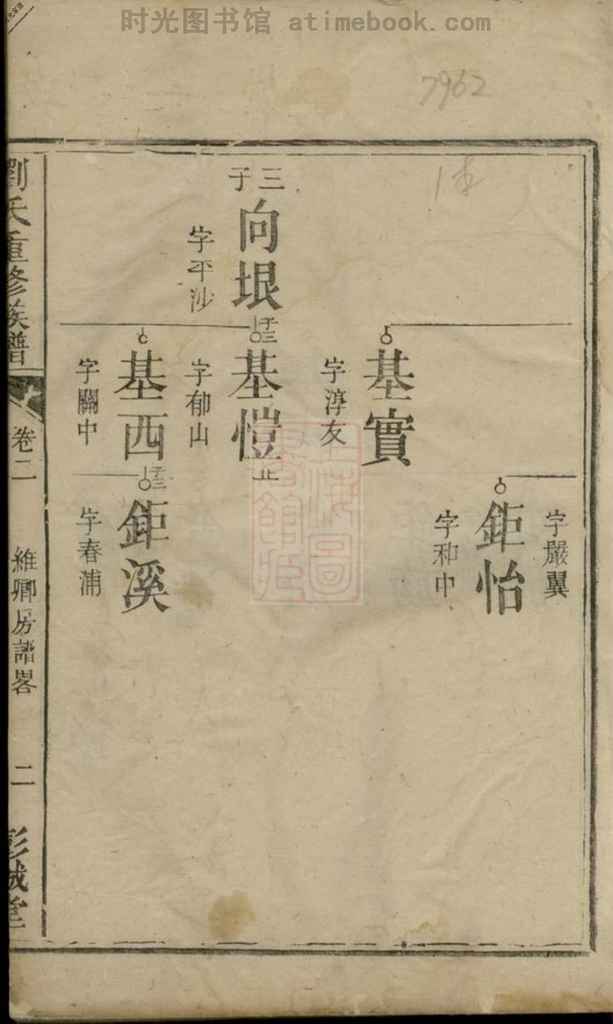 时光图书馆 atimebook.com
7962
字嚴翼
鉅怡
字和中
基實
字淳友
三子
向垠
字平沙
基愷
止
字郁山
基西
字關中
鉅溪
字春浦
劉氏重修族譜
卷二
維卿房譜畧
二
彭城堂